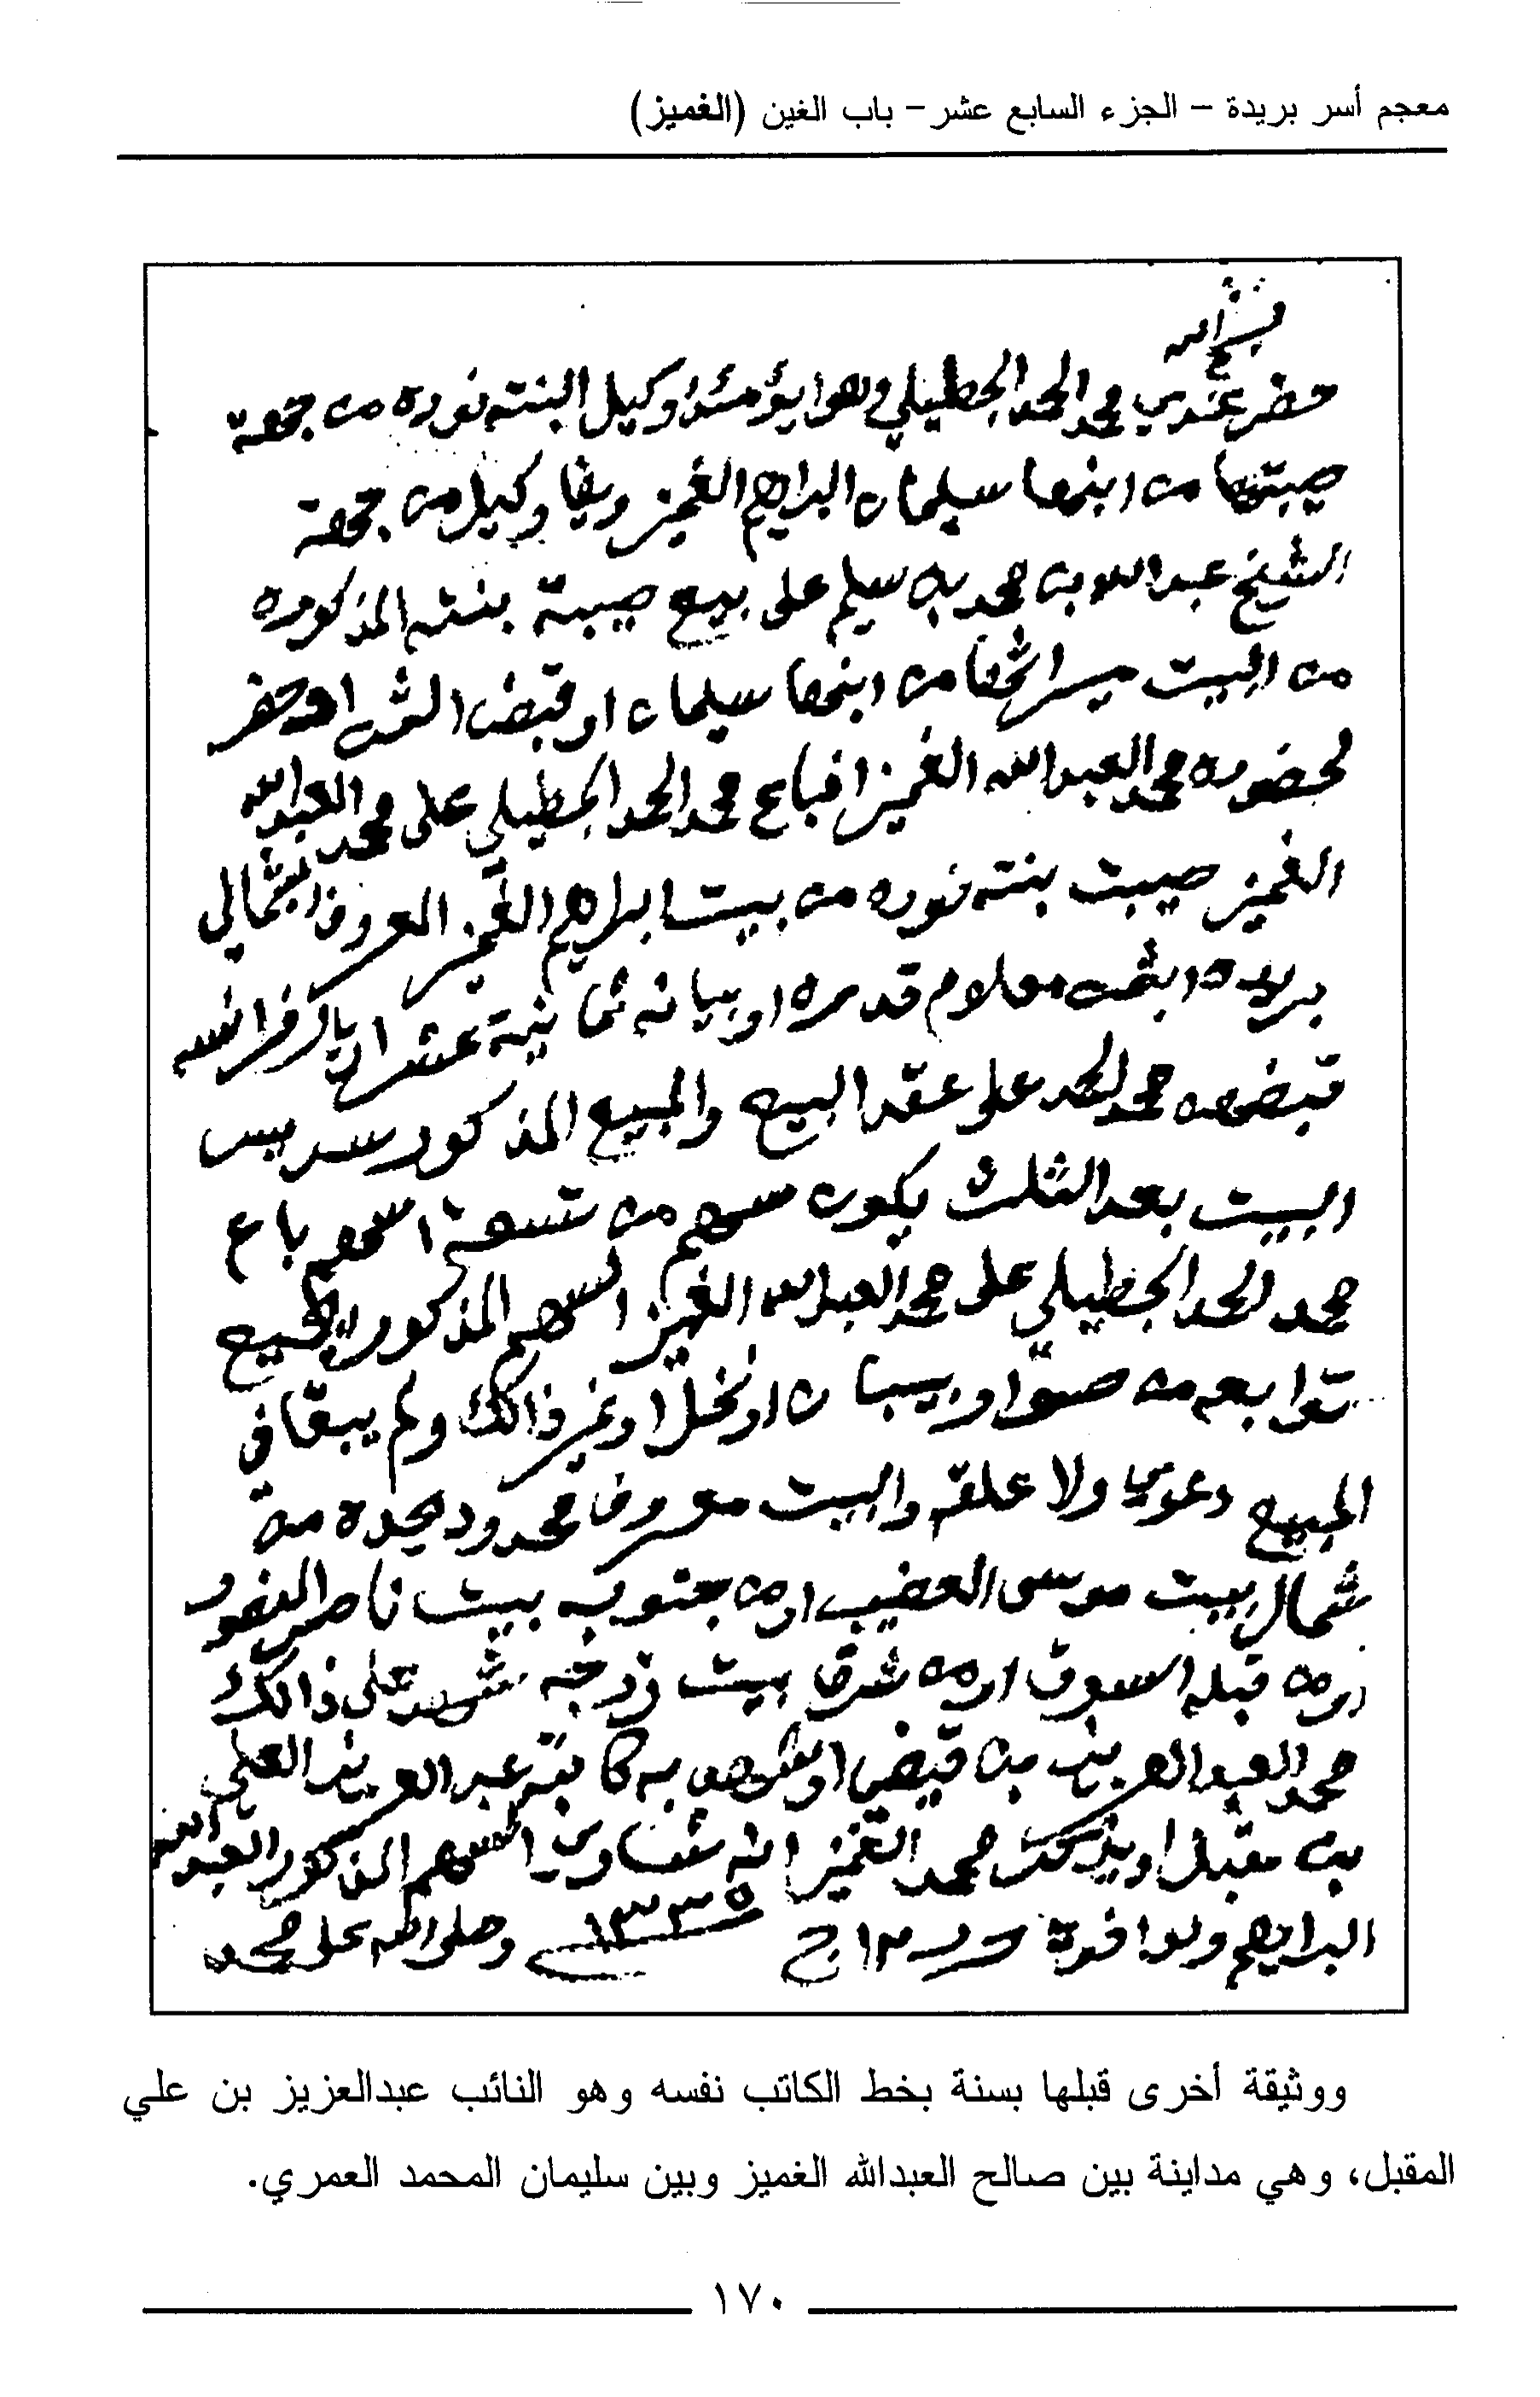 معجم أسر بريدة – الجزء السابع عشر – باب الغين (الغميز)
بسم الله
حضر عندي محمد الحمد الجطيلي وهوا يؤمئذا وكيل البنته نوره من جهة
صيبتها من ابنها سليمان البراهيم الغميز ويضا وكيل من جهة
الشيخ عبدالله بن محمد بن سليم على بيع صيبة بنته المذكوره
من البيت ميراثها من ابنها سليمان او قبض الثمن احضر
لحضوره محمد العبدالله الغميز اوباع محمد الحمد الجطيلي على محمد العبدالله
الغميز صيبت بنته نوره من بيت ابراهيم الغميز المعروف ابشمالي
بريده ابثمن معلوم قدره او بيانه ثمانية عشر اريال فرانسه
قبضهن محمد الحمد على عقد البيع والمبيع المذكور سدس
البيت بعد الثلث يكون سهم من تسعة اسهم باع
محمد الحمد الجطيلي على محمد العبدالله الغميز السهم المذكور ابجميع
توابعه من او بيبان او نخل او غير ذالك ولم يبقا في
المبيع دعوى ولا علقه والبيت معروف محدود يحده من
شمال بيت موسى العضيب او من جنوب بيت ناصر
او من قبله السوق او من شرق بيت زوجه شهد على ذالك
محمد العبدالعزيز بن او شهد به كاتبه عبدالعزيز العلي
بن مقبل او يذكر محمد الغميز انه السهم المذكور العبدالله
البراهيم ولوا فوة حرر ١٣٣٥ وصلى الله على محمد
ووثيقة أخرى قبلها بسنة بخط الكاتب نفسه وهو النائب عبدالعزيز بن علي
المقبل، وهي مداينة بين صالح العبدالله الغميز وبين سليمان المحمد العمري.
١٧٠